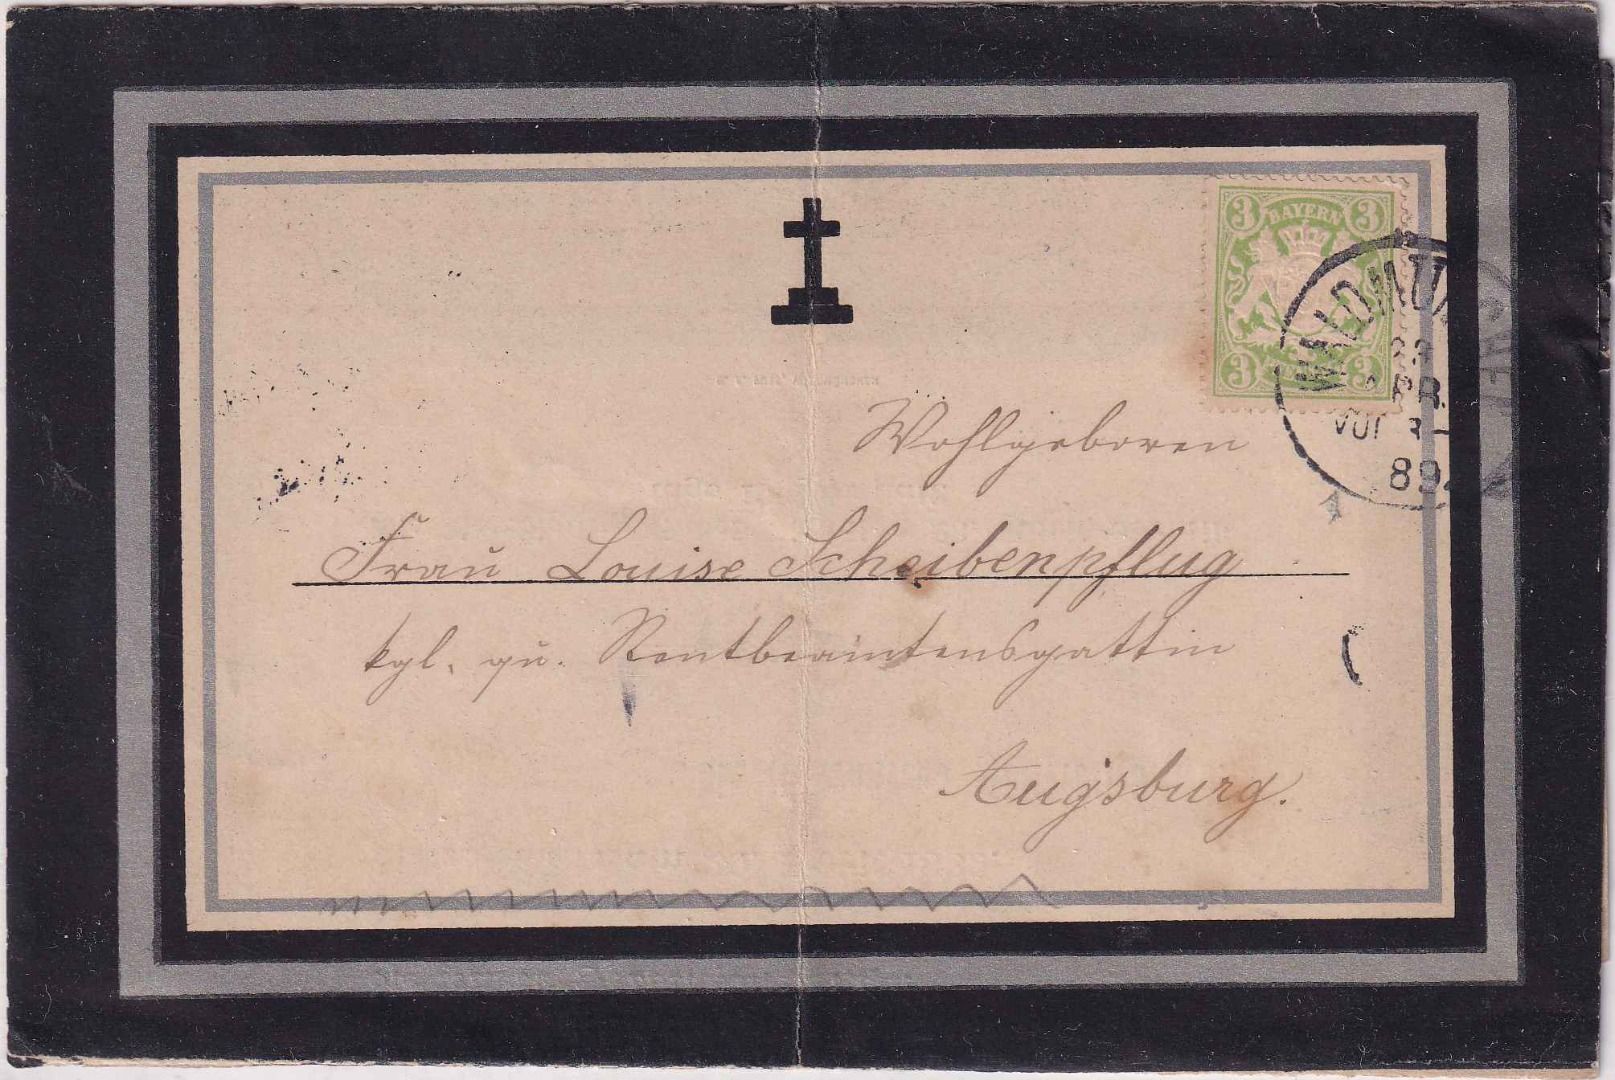 3 BAYERN 3
3 3
WALDMÜN
APR.
VOR
89
Wohlgeboren
Frau Louise Scheibenpflug
kgl. qu. Rentbeamtensgattin
Augsburg.